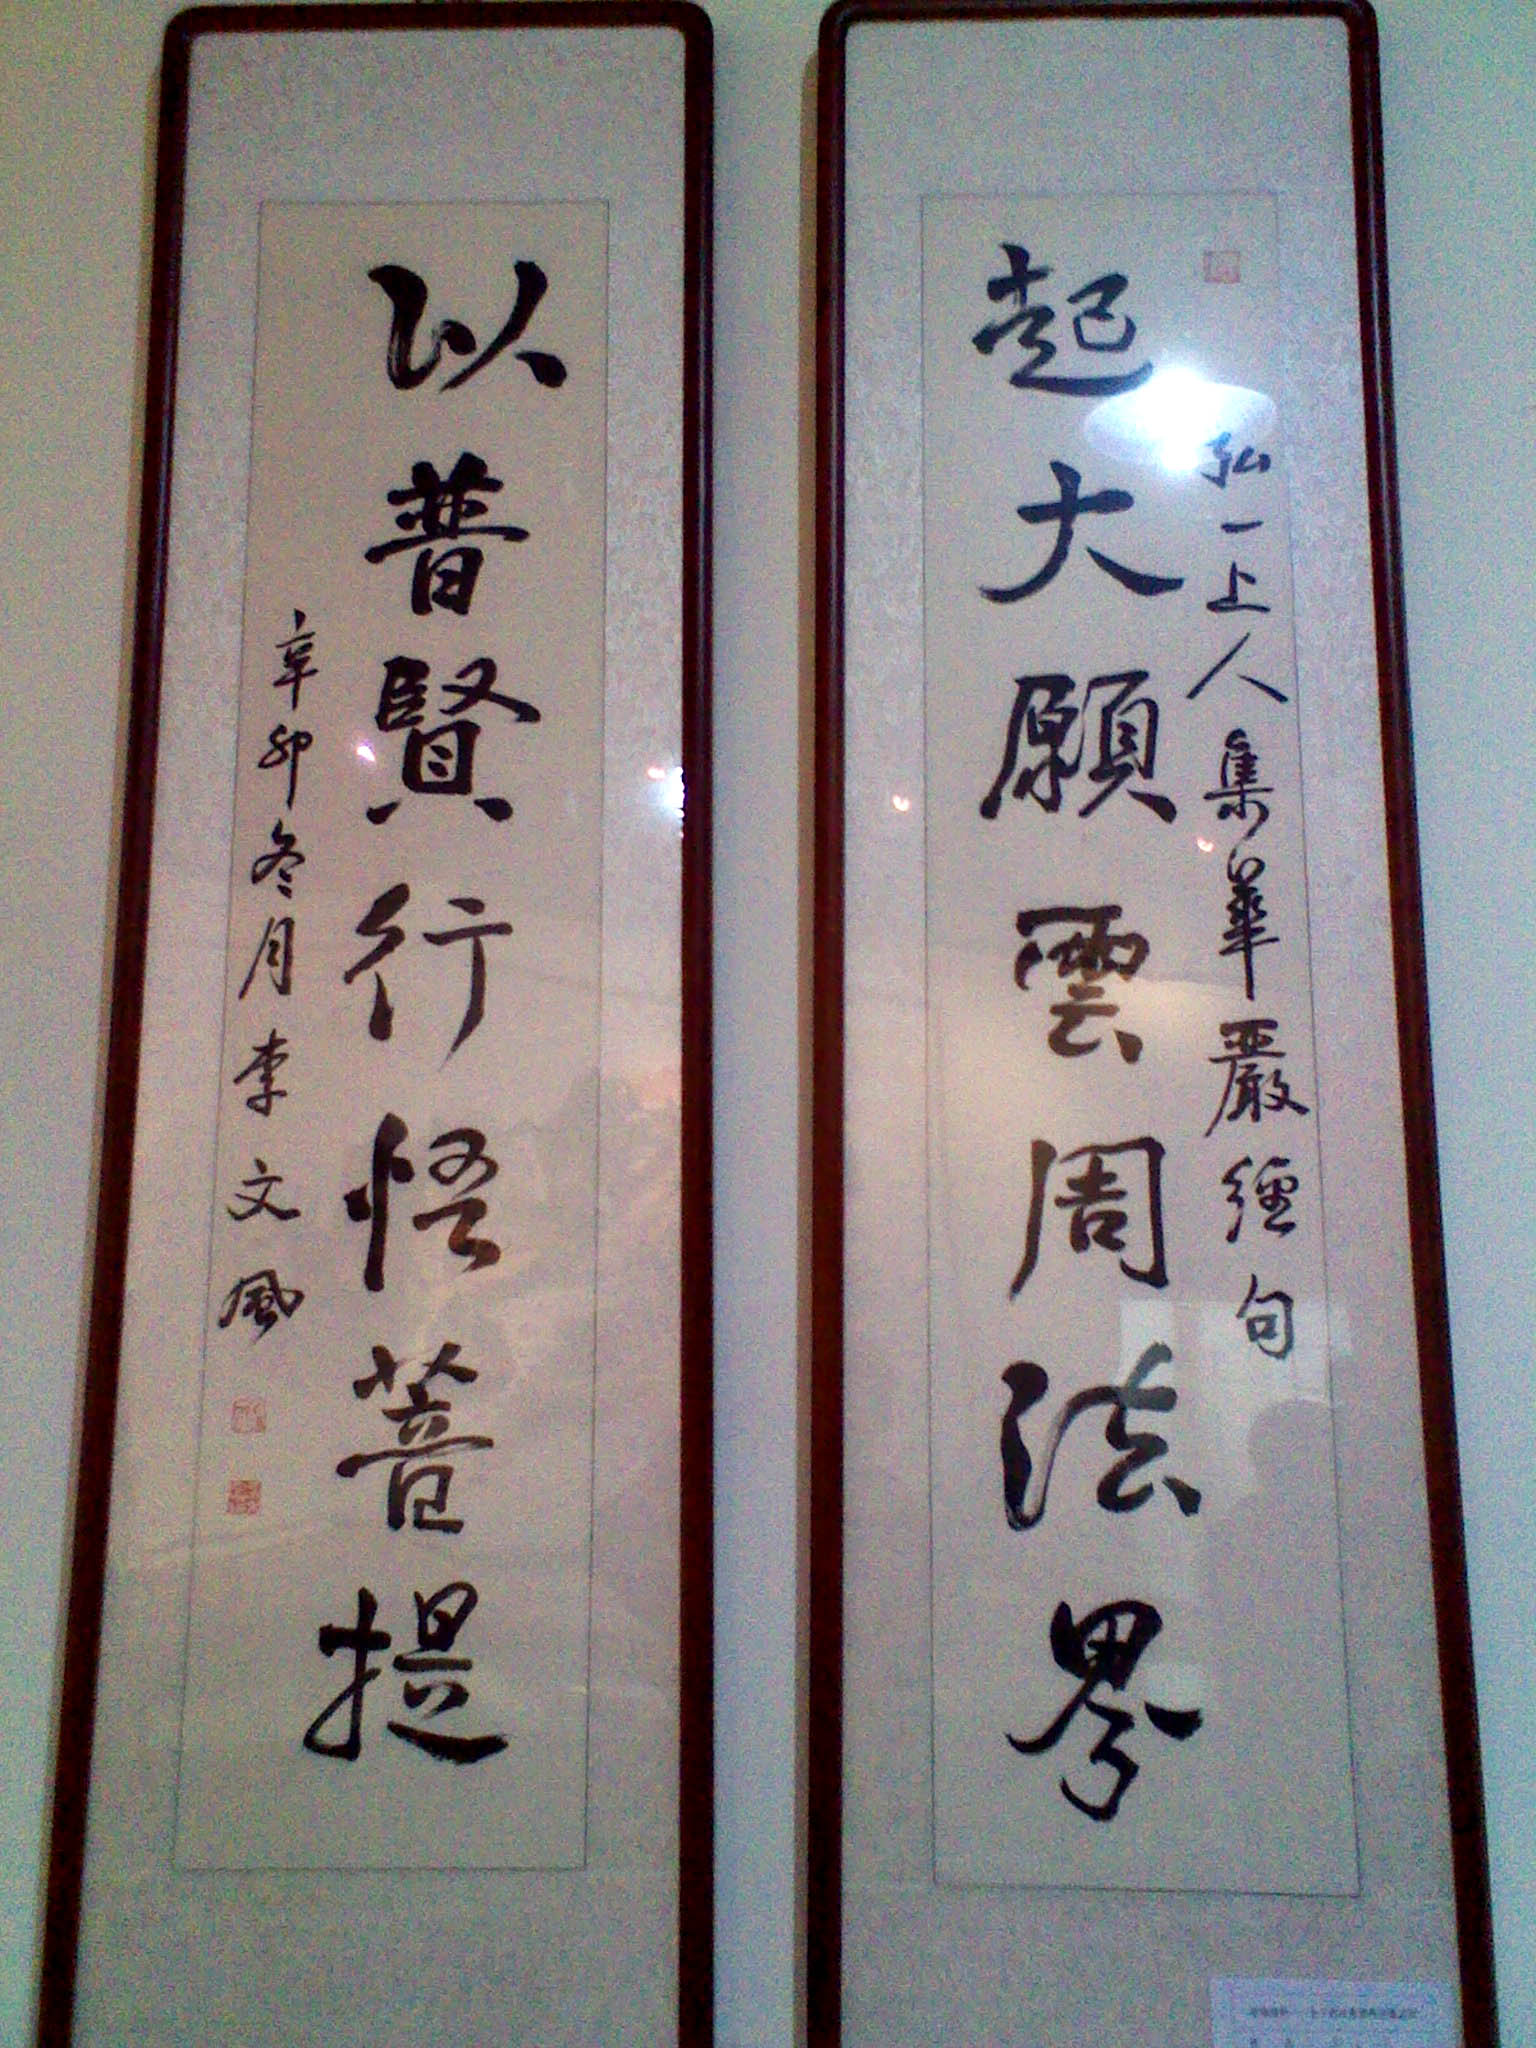 弘一上人集華嚴經句
起大願雲周法界
以普賢行悟菩提
辛卯冬月李文風